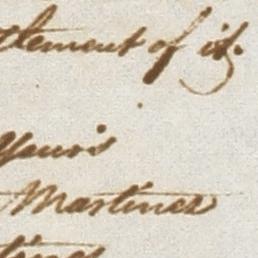 tlement of it.
Yours
Martinez
tines